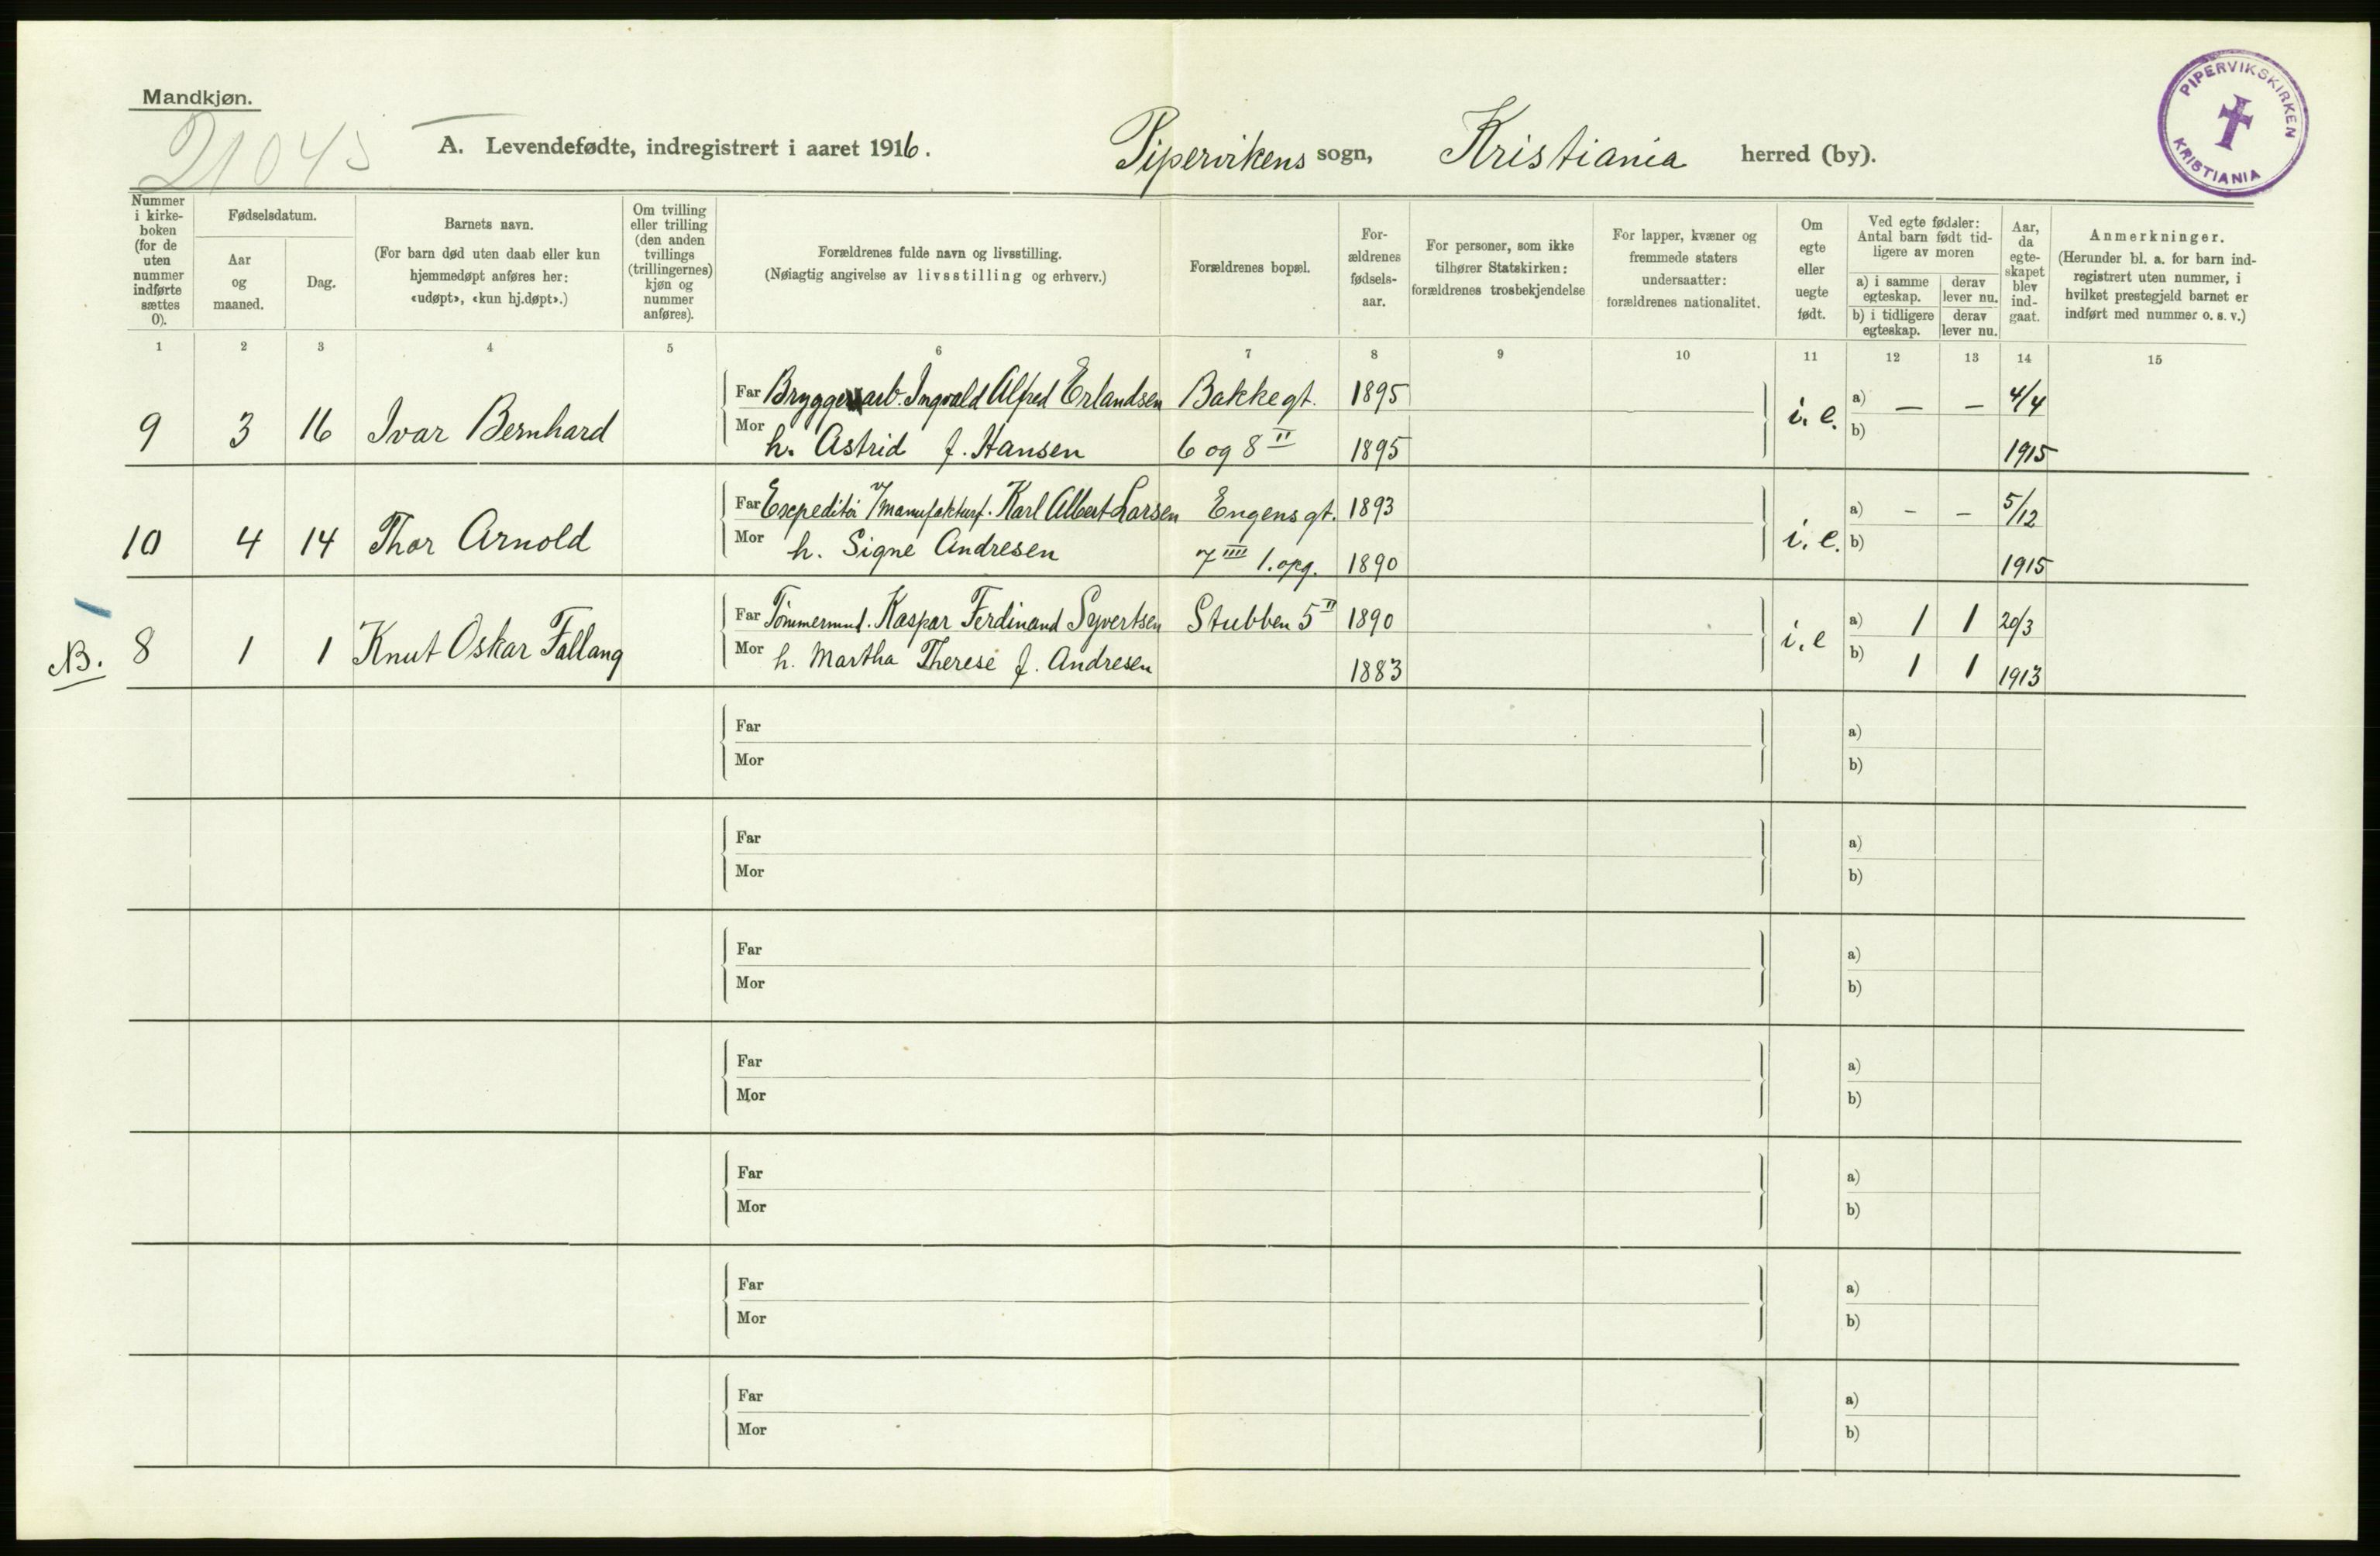 Mandkjøn.
21045
A. Levendefødte, indregistrert i aaret 1916. Pipervikens sogn, Kristiania herred (by).
PIPERVIKSKIRKEN
KRISTIANIA
Nummer i kirke-boken (for de uten nummer indførte sættes 0).
Fødselsdatum.
Aar og maaned.
Dag.
Barnets navn.
(For barn død uten daab eller kun hjemmedøpt anføres her: «udøpt», «kun hj.døpt».)
Om tvilling eller trilling (den anden tvillings (trillingernes) kjøn og nummer anføres).
Forældrenes fulde navn og livsstilling.
(Nøiagtig angivelse av livsstilling og erhverv.)
Forældrenes bopæl.
For-ældrenes fødsels-aar.
For personer, som ikke tilhører Statskirken: forældrenes trosbekjendelse
For lapper, kvæner og fremmede staters undersaatter: forældrenes nationalitet.
Om egte eller uegte født.
Ved egte fødsler: Antal barn født tid-ligere av moren
a) i samme egteskap.
derav lever nu.
b) i tidligere egteskap.
derav lever nu.
Aar, da egte-skapet blev ind-gaat.
Anmerkninger.
(Herunder bl. a. for barn ind-registrert uten nummer, i hvilket prestegjeld barnet er indført med nummer o. s. v.)
1 2 3 4 5 6 7 8 9 10 11 12 13 14 15
Far Bryggeriarb. Ingvald Alfred Erlandsen Bakkegt. 1895 a) — — 4/4
9 3 16 Ivar Bernhard i. e.
Mor h. Astrid f. Hansen 6 og 8 II 1895 b) 1915
Far Expeditør v/manufakturf. Karl Albert Larsen Engens gt. 1893 a) - - 5/12
10 4 14 Thor Arnold i. e.
Mor h. Signe Andresen 7 IIII 1. opg. 1890 b) 1915
Far Tømmermd. Kaspar Ferdinand Syvertsen Stubben 5 II 1890 a) 1 1 20/3
NB. 8 1 1 Knut Oskar Fallang i. e
Mor h. Martha Therese f. Andresen 1883 b) 1 1 1913
Far a)
Mor b)
Far a)
Mor b)
Far a)
Mor b)
Far a)
Mor b)
Far a)
Mor b)
Far a)
Mor b)
Far a)
Mor b)